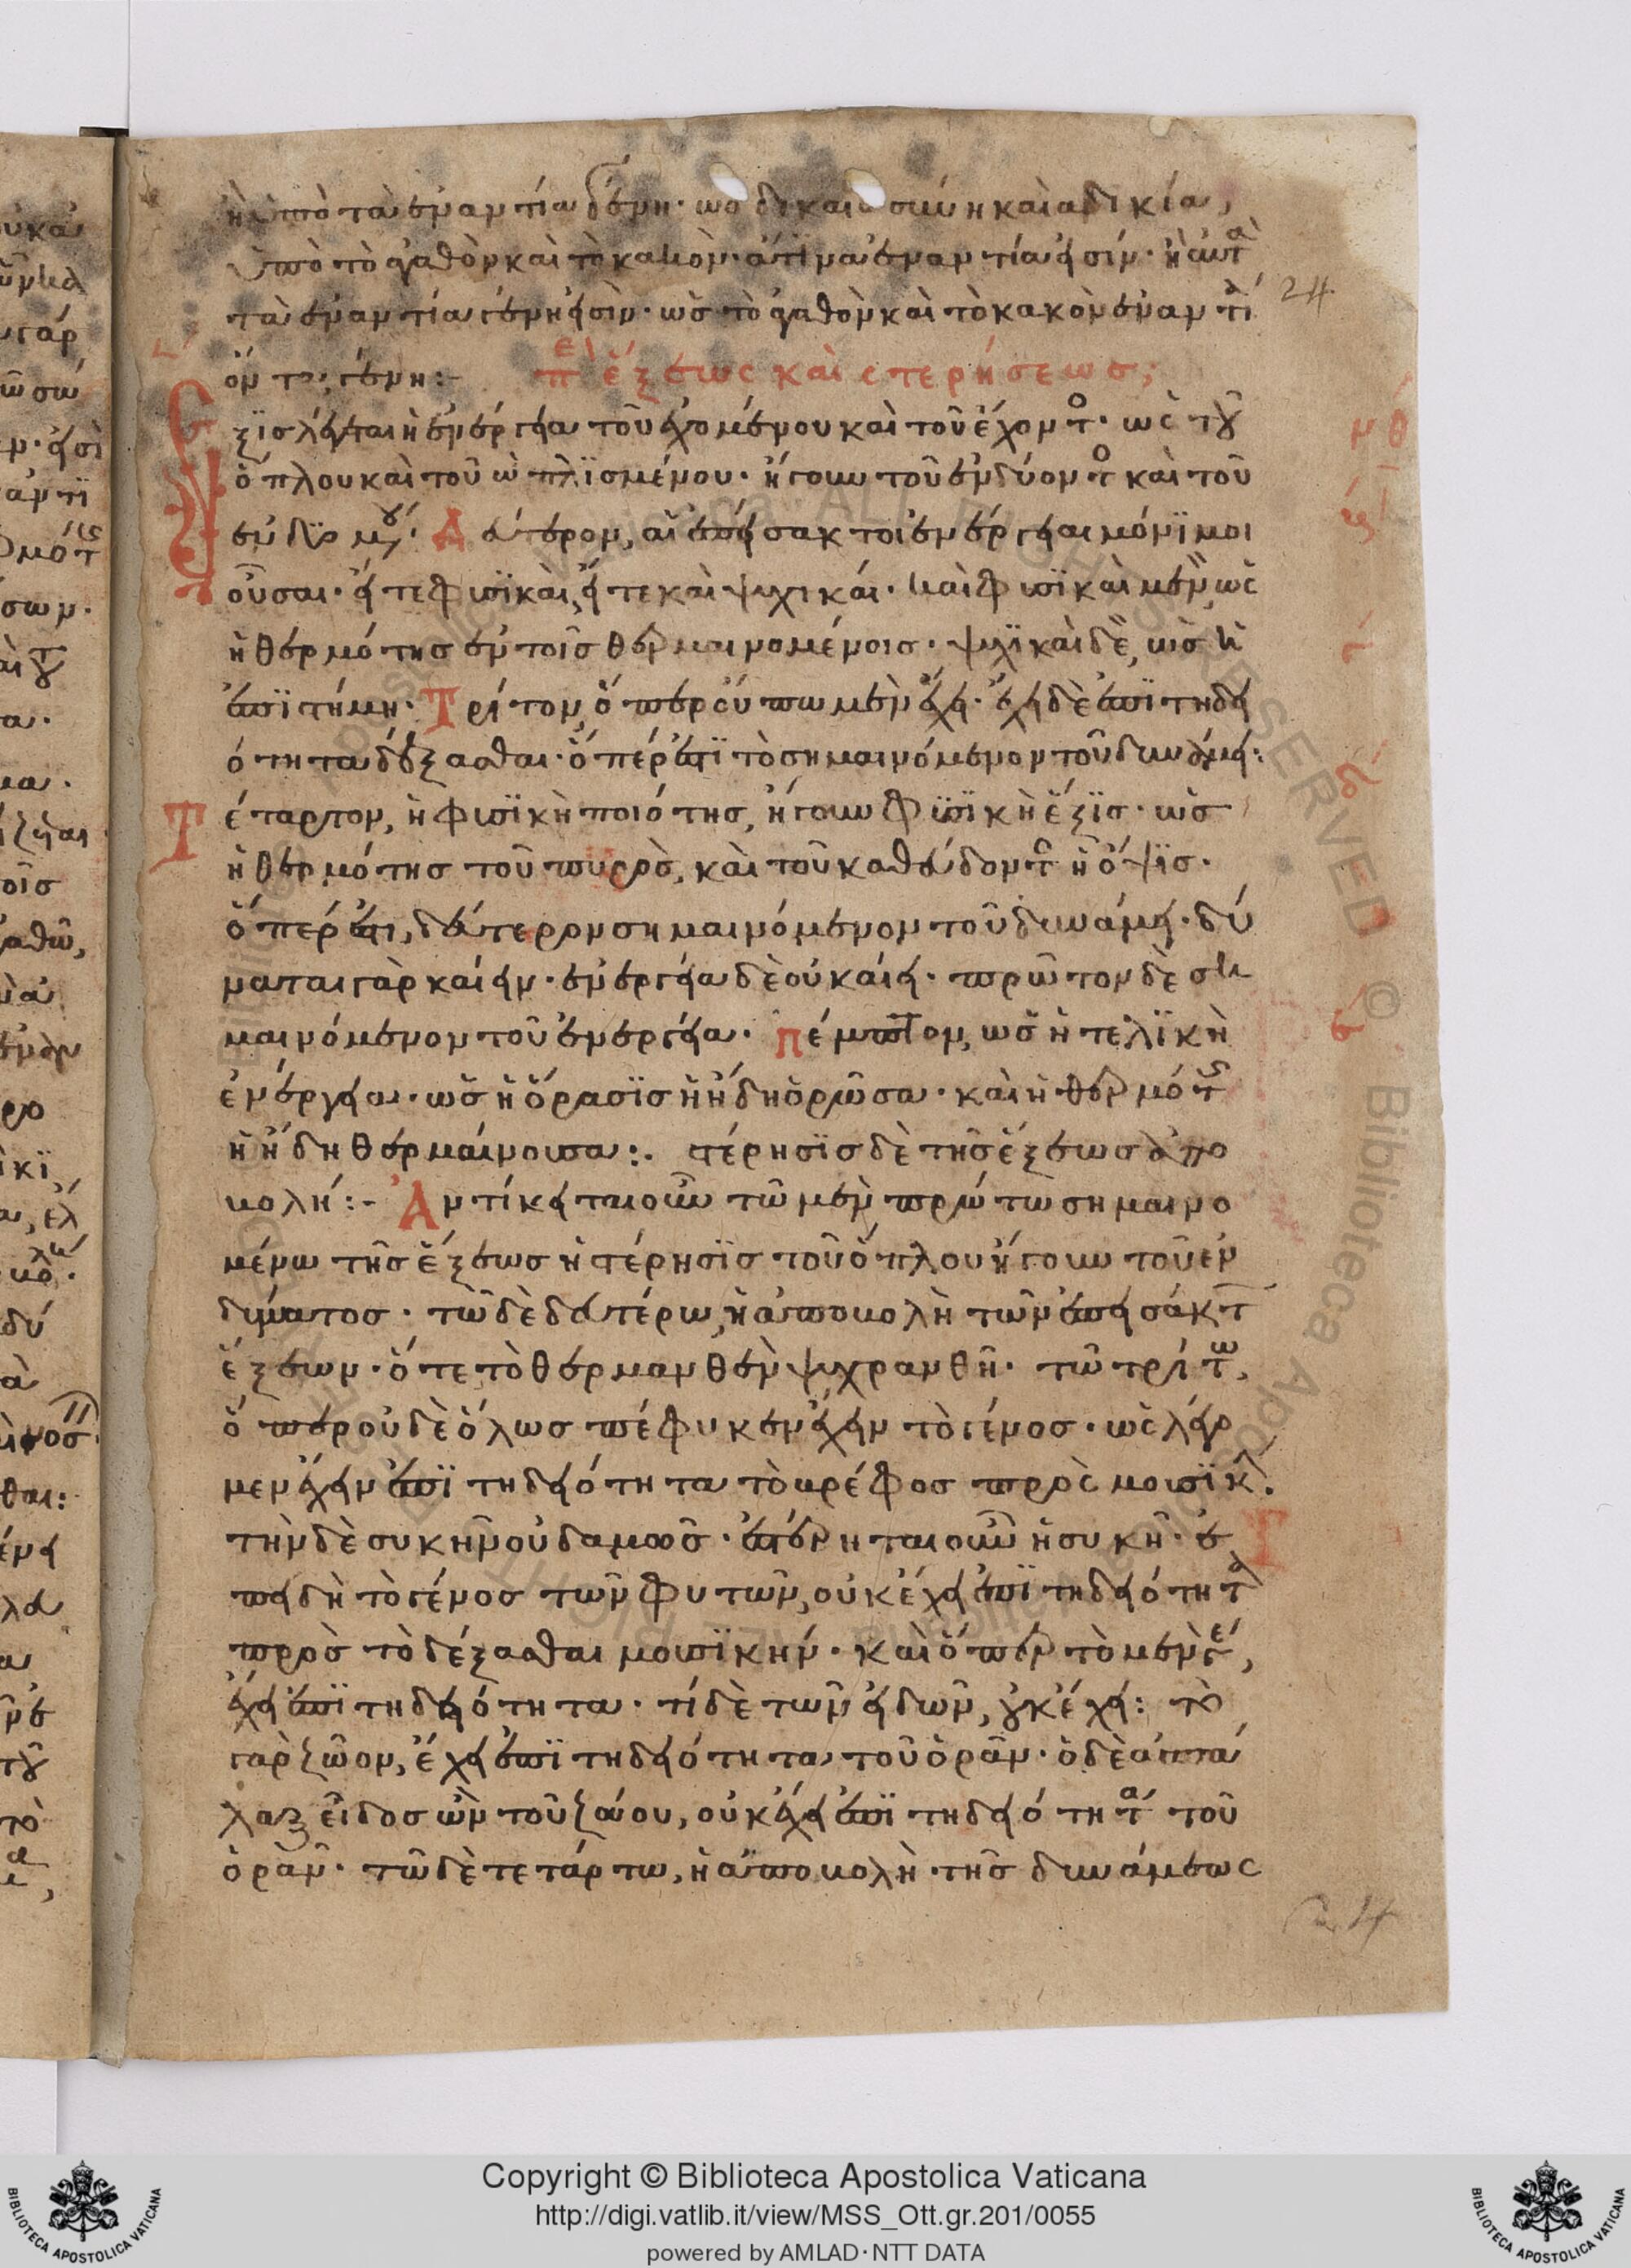 ἢ ὑπὸ τὰ ἐναντία γένη· ὡς δικαιοσύνη καὶ ἀδικία,
ὑπὸ τὸ ἀγαθὸν καὶ τὸ κακὸν· ἅτινα ἐναντία εἰσίν· ἢ αὐτὰ
τὰ ἐναντία γένη εἰσὶν· ὡς τὸ ἀγαθὸν καὶ τὸ κακὸν ἐναντί
ον γένη:
24
περὶ ἕξεως καὶ στερήσεως;
Ἕξις λέγεται ἡ ἐνέργεια τοῦ ἐχομένου καὶ τοῦ ἔχοντος· ὡς τοῦ
ὅπλου καὶ τοῦ ὡπλϊσμένου· ἤγουν τοῦ ἐνδύοντος καὶ τοῦ
ἐνδυομένου· Δεύτερον, αἱ ἐπείσακτοι ἐνέργειαι μόνϊμοι
οὖσαι· εἴτε φυσϊκαὶ, εἴτε καὶ ψυχικάι· καὶ φυσϊκαὶ μὲν, ὡς
ἡ θερμότης ἐν τοῖς θερμαινομένοις· ψυχϊκαὶ δὲ, ὡς ἡ
ἐπϊστήμη· Τρίτον, ὅπερ οὔπω μὲν ἔχει· ἔχει δὲ ἐπϊτηδει
ότητα δέξασθαι· ὅπερ ἐστὶ τὸ σημαινόμενον τοῦ δυνάμει:
Τέταρτον, ἡ φυσϊκὴ ποιότης, ἤγουν φυσϊκὴ ἕξϊς· ὡς
ἡ θερμότης τοῦ πυρὸς, καὶ τοῦ καθεύδοντος ἡ ὄψϊς·
ὅπερ ἐστι, δεύτερον σημαινόμενον τοῦ δυνάμει· δύ
ναται γὰρ καίειν· ἐνέργεια δὲ οὐ καίει· πρῶτον δὲ ση
μαινόμενον τοῦ ἐνέργεια· πέμπτον, ὡς ἡ τελϊκὴ
ἐνέργεια· ὡς ἡ ὅρασϊς ἡ ἤδη ὁρῶσα· καὶ ἡ θερμότης
ἡ ἤδη θερμαίνουσα:. στέρησϊς δὲ τῆς ἕξεως ἀπο
βολή:- Ἀντίκειται οὖν τῶ μὲν πρώτω σημαινο
μένω τῆς ἕξεως ἡ στέρησϊς τοῦ ὅπλου ἤγουν τοῦ ἐν
δύματος· τῶ δὲ δευτέρω, ἡ ἀποβολὴ τῶν ἐπεισάκτων
ἕξεων· ὅτε τὸ θερμανθὲν ψυχρανθῆ· τῶ τρίτω,
ὅπερ οὐδὲ ὅλως πέφυκεν ἔχειν τὸ γένος· ὡς λέγο
μεν ἔχειν ἐπϊτηδειότητα τὸ βρέφος πρὸς μουσϊκήν.
τὴν δὲ συκῆν οὐδαμῶς· ἐστέρηται οὖν ἡ συκῆ· ἐ
πειδὴ τὸ γένος τῶν φυτῶν, οὐκ ἔχει ἐπϊτηδειότητα
πρὸς τὸ δέξασθαι μουσϊκήν· καὶ ὅπερ τὸ μὲν γένος,
ἔχει ἐπϊτηδειότητα· τὶ δὲ τῶν εἰδῶν, οὐκ ἔχει: τὸ
γὰρ ζῶον, ἔχει ἐπϊτηδειότητα τοῦ ὁρᾶν· ὁ δὲ ἀσπά
λαξ εἶδος ὢν τοῦ ζώου, οὐκ ἔχει ἐπϊτηδειότητα τοῦ
ὁρᾶν· τῶ δὲ τετάρτω, ἡ ἀποβολὴ τῆς δυνάμεως
Copyright © Biblioteca Apostolica Vaticana
http://digi.vatlib.it/view/MSS_Ott.gr.201/0055
powered by AMLAD·NTT DATA
BIBLIOTECA APOSTOLICA VATICANA
BIBLIOTECA APOSTOLICA VATICANA